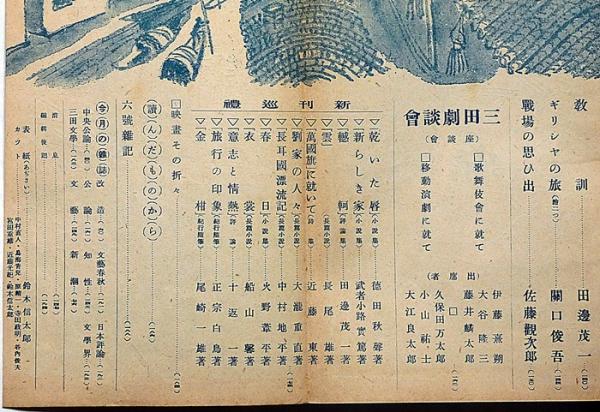 教訓 田邊茂一
ギリシヤの旅 關口俊吾
戰場の思ひ出 佐藤觀次郎
三田劇談會
(座談會)
□歌舞伎會に就て
□移動演劇に就て
(出席者)
伊藤熹朔
大谷隆三
藤井麟太郎
久保田万太郎
□
小山祐士
大江良太郎
新刊巡禮
▽乾いた唇(小說集) 德田秋聲著
▽新らしき家(小說集) 武者小路實篤著
▽轗軻(長篇小說) 田邊茂一著
▽雲(長篇小說) 長尾雄著
▽萬國旗に就いて(詩集) 近藤東著
▽劉家の人々(長篇小說) 大瀧重直著
▽長耳國漂流記(長篇小說) 中村地平著
▽春日(小說集) 火野葦平著
▽衣裳(長篇小說) 船山馨著
▽意志と情熱(評論) 十返一著
▽旅行の印象(紀行隨筆) 正宗白鳥著
▽金柑(紀行隨筆) 尾崎一雄著
映畫その折々
讀(ん)だ(も)の(か)ら
六號雜記
今月の雜誌 改造 文藝春秋 日本評論
中央公論 公論 知性 文學界
三田文學 文藝 新潮
消息
編輯後記
表紙(あぢさい) 鈴木信太郎
カット 中村直人・島海靑兒・原精一・寺田政明・谷內俊夫
宮田重雄・近藤光紀・鈴木信太郎